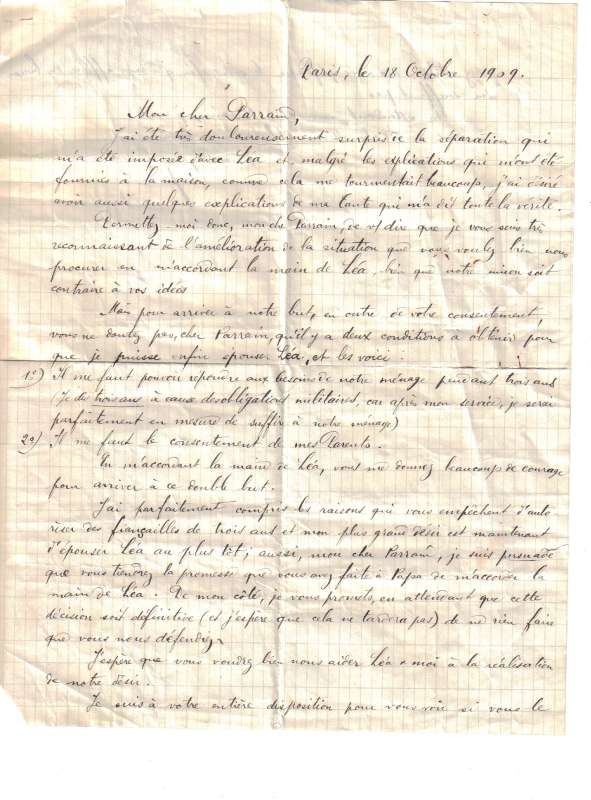 Paris, le 18 Octobre 1909.
Mon cher Parrain,
J'ai été très douloureusement surpris de la séparation qui
m'a été imposée d'avec Léa et, malgré les explications qui m'ont été
fournies à la maison, comme cela me tourmentait beaucoup, j'ai désiré
avoir aussi quelques explications de ma tante qui m'a dit toute la vérité.
Permettez-moi donc, mon cher Parrain, de vs dire que je vous suis très
reconnaissant de l'amélioration de la situation que vous voulez bien nous
procurer en m'accordant la main de Léa, bien que notre union soit
contraire à vos idées
Mais pour arriver à notre but, en outre de votre consentement,
vous ne doutez pas, cher Parrain, qu'il y a deux conditions à obtenir pour
que je puisse enfin épouser Léa, et les voici :
1º) Il me faut pouvoir répondre aux besoins de notre ménage pendant trois ans
(Je dis trois ans à cause des obligations militaires, car après mon service, je serai
parfaitement en mesure de suffir à notre ménage)
2º) Il me faut le consentement de mes Parents.
En m'accordant la main de Léa, vous me donnez beaucoup de courage
pour arriver à ce double but.
J'ai parfaitement compris les raisons qui vous empêchent d'auto
riser des fiançailles de trois ans et mon plus grand désir est maintenant
d'épouser Léa au plus tôt ; aussi, mon cher Parrain, je suis persuadé
que vous tiendrez la promesse que vous avez faite à Papa de m'accorder la
main de Léa. De mon côté, je vous promets, en attendant que cette
décision soit définitive (et j'espère que cela ne tardera pas) de ne rien faire
que vous nous défendrez.
J'espère que vous voudrez bien nous aider Léa & moi à la réalisation
de notre désir.
Je suis à votre entière disposition pour vous voir si vous le